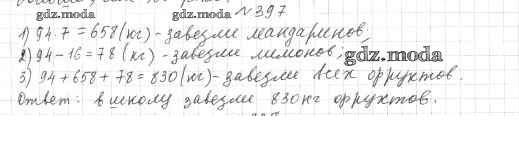 gdz.moda gdz.moda №397
1) 94·7=658(кг)-завезли мандаринов,
2) 94-16=78 (кг)-завезли лимонов; gdz.moda
3) 94+658+78=830(кг)-завезли всех фруктов.
Ответ: в школу завезли 830кг фруктов.